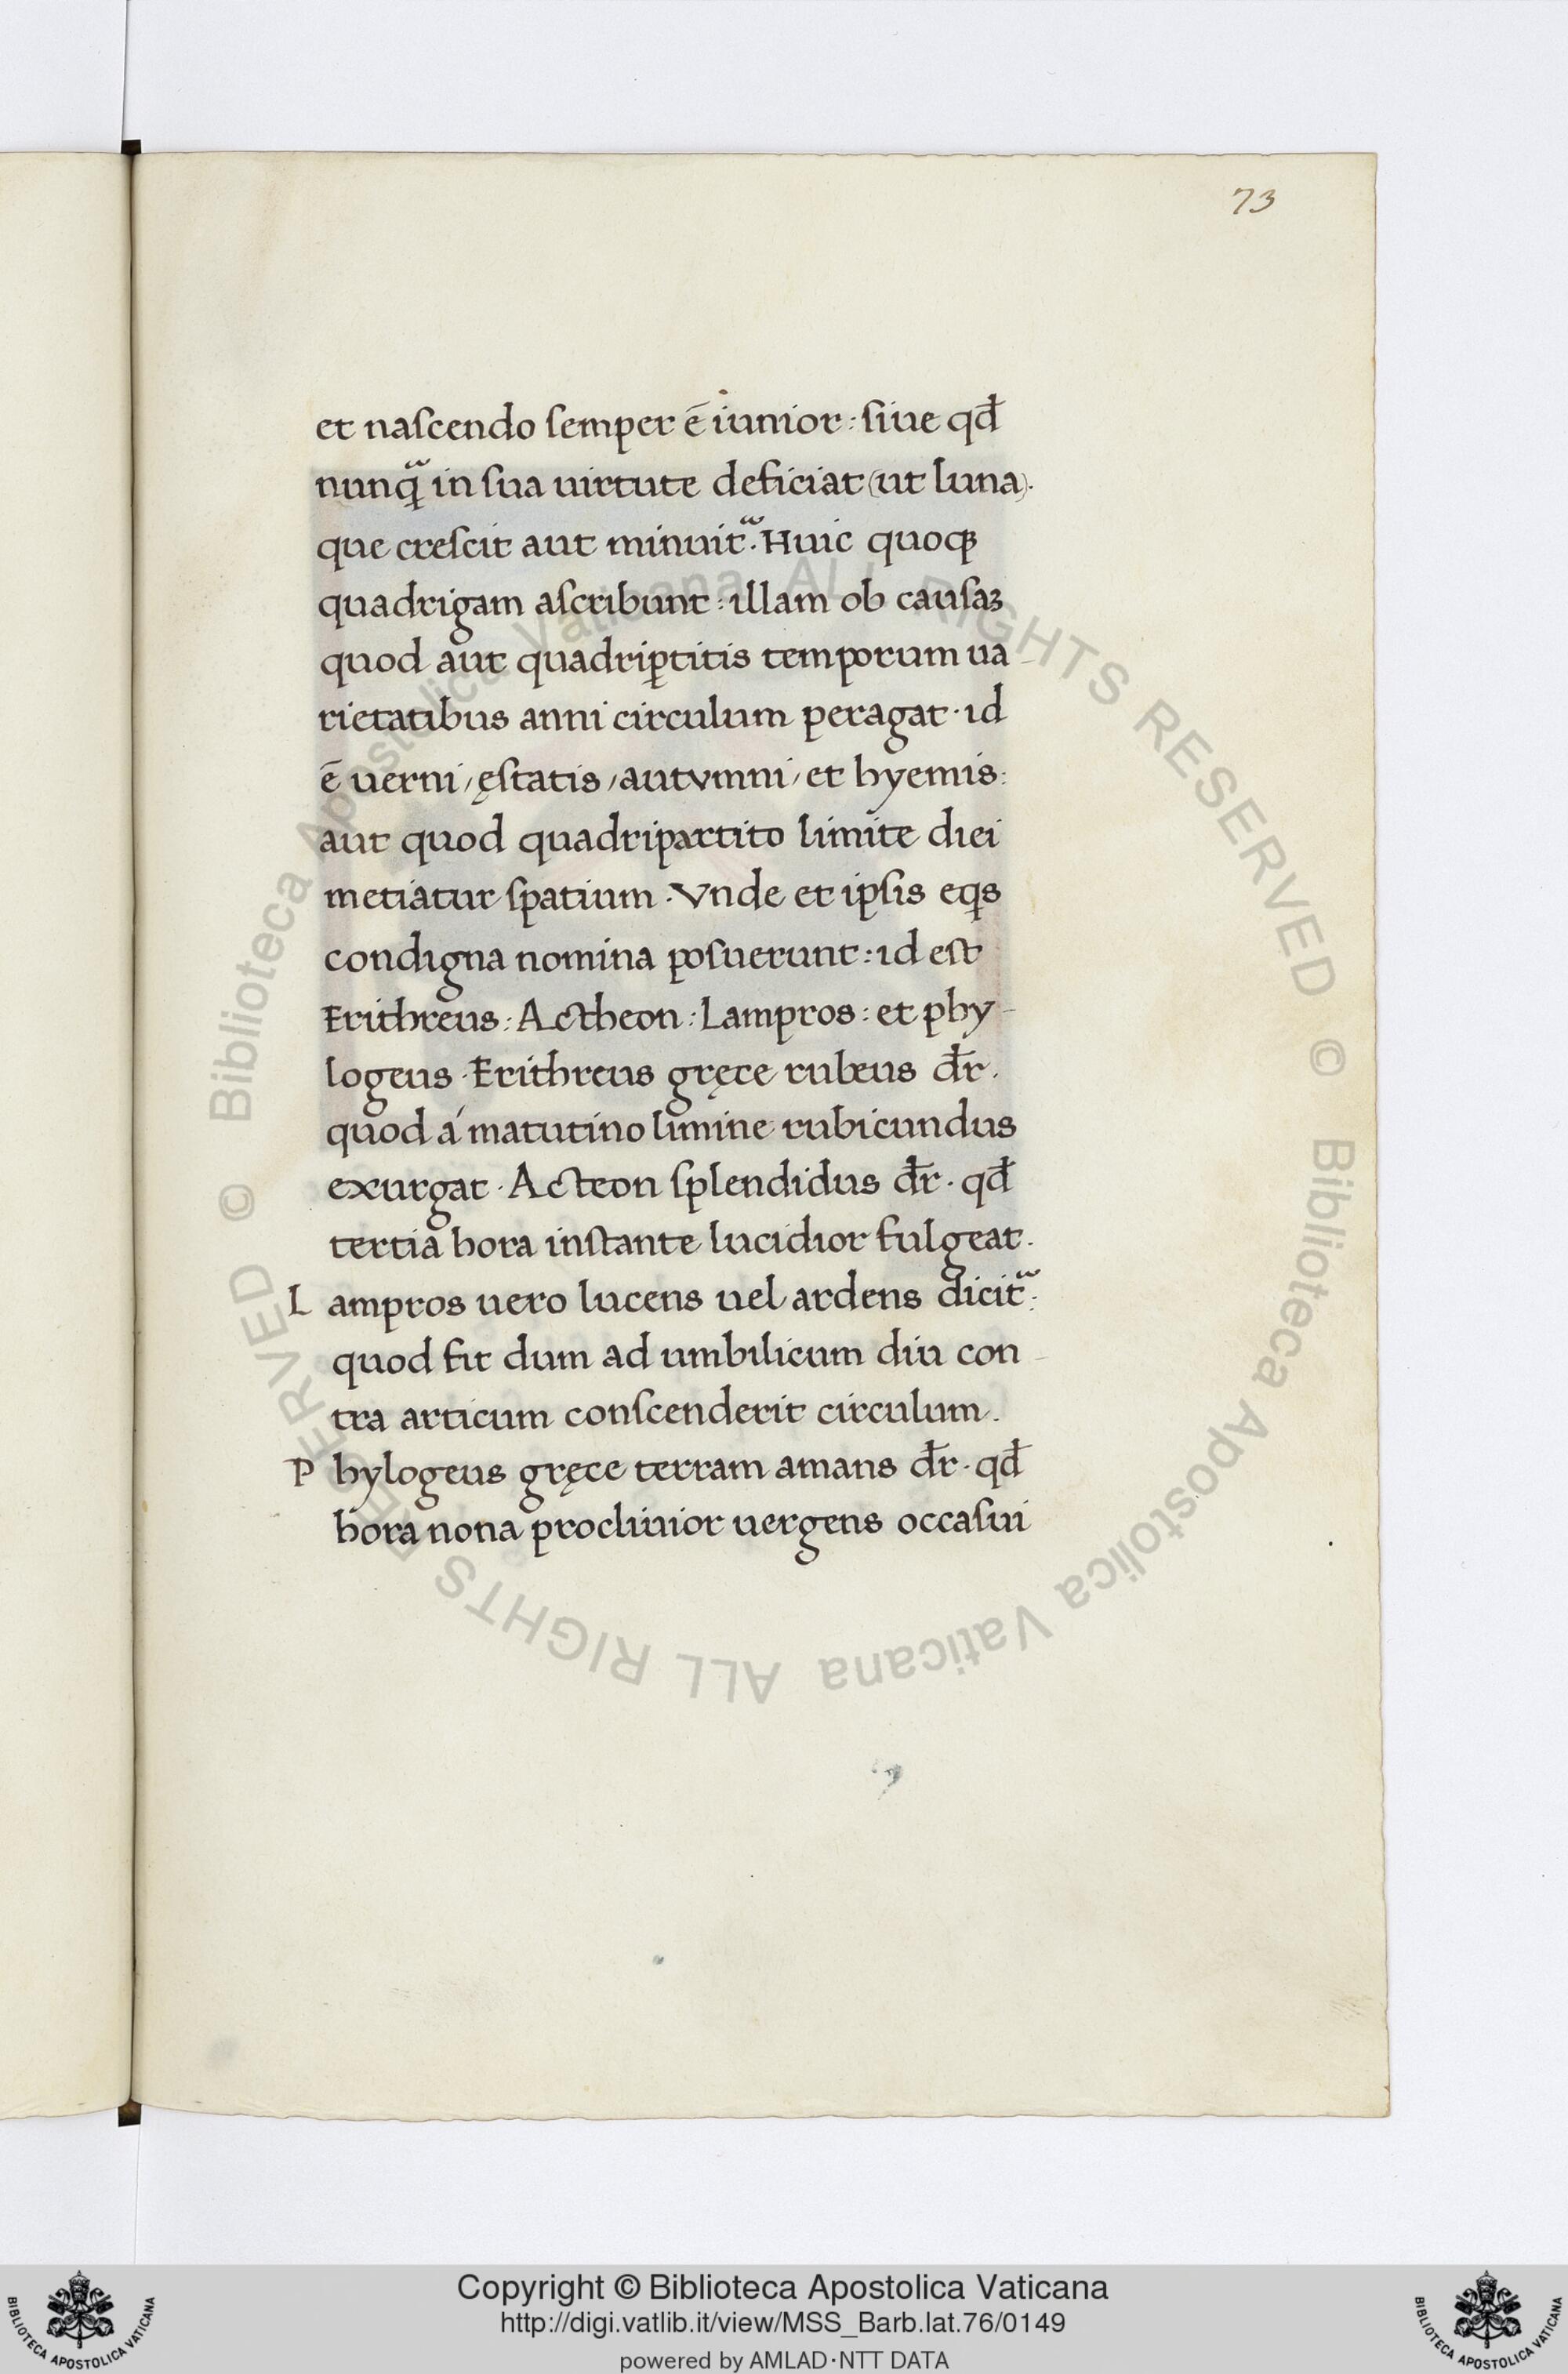 73
et nascendo semper ē iunior: siue qđ
nunꝗᷓ in sua uirtute deficiat (ut luna).
que crescit aut minuitᷓ. Huic quoqꝫ
quadrigam ascribunt: illam ob causaꝫ
quod aut quadriꝑtitis temporum ua-
rietatibus anni circulum peragat. id
ē uerni, ęstatis, autvmni, et hyemis:
aut quod quadripartito limite diei
metiatur spatium. Vnde et ipsis eqs
condigna nomina posuerunt: id est
Erithreus: Actheon: Lampros: et phy-
logeus. Erithreus gręce rubeus dr̄.
quod á matutino limine rubicundus
exurgat. Acteon splendidus dr̄. qđ
tertia hora instante lucidior fulgeat.
Lampros uero lucens uel ardens dicitᷓ:
quod fit dum ad umbilicum diu con-
tra articum conscenderit circulum.
Phylogeus gręce terram amans dr̄. qđ
hora nona procliuior uergens occasui
© Biblioteca Apostolica Vaticana ALL RIGHTS RESERVED © Biblioteca Apostolica Vaticana ALL RIGHTS RESERVED
Copyright © Biblioteca Apostolica Vaticana
http://digi.vatlib.it/view/MSS_Barb.lat.76/0149
powered by AMLAD·NTT DATA
BIBLIOTECA APOSTOLICA VATICANA
BIBLIOTECA APOSTOLICA VATICANA